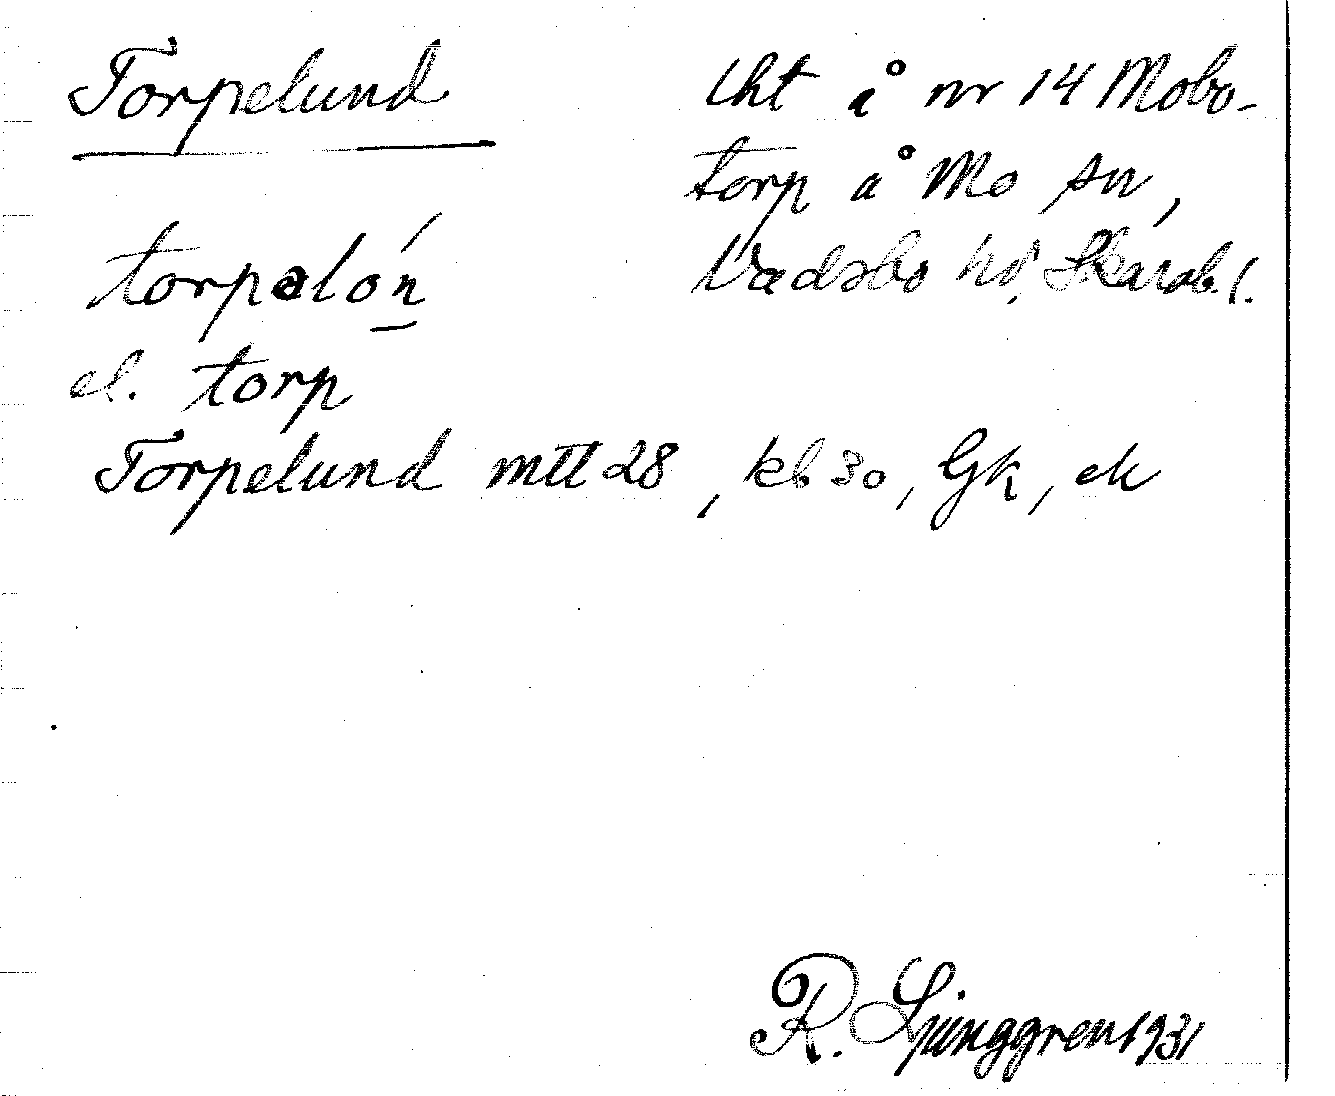 Torpelund
lht å nr 14 Mobo-
torp å Mo sn,
Vadsbo hd, Skarab. l.
torpəlón
el. torp
Torpelund mtl 28, kb 30, Gk, ek
R. Ljunggren 1931